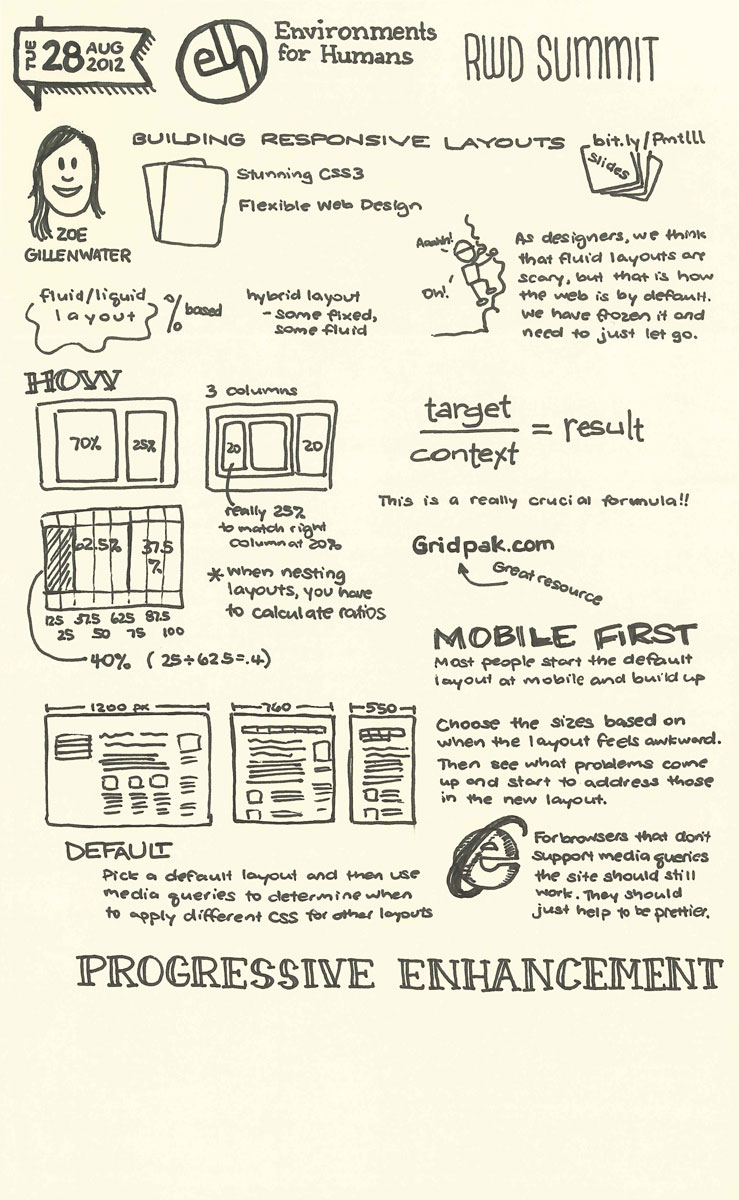 TUE 28 AUG 2012
efh
Environments
for Humans
RWD SUMMIT
BUILDING RESPONSIVE LAYOUTS
bit.ly/Pmtlll
Slides
ZOE
GILLENWATER
Stunning CSS3
Flexible Web Design
Aaahh!
Oh!
As designers, we think
that fluid layouts are
scary, but that is how
the web is by default.
We have frozen it and
need to just let go.
fluid/liquid
layout
% based
hybrid layout
- some fixed,
some fluid
HOW
70% 25%
3 columns
20 20
really 25%
to match right
column at 20%
target
context
= result
This is a really crucial formula!!
Gridpak.com
Great resource
62.5% 37.5
%
12.5 37.5 62.5 87.5
25 50 75 100
40% (25÷62.5=.4)
* When nesting
layouts, you have
to calculate ratios
MOBILE FIRST
Most people start the default
layout at mobile and build up
1200 px 760 550
Choose the sizes based on
when the layout feels awkward.
Then see what problems come
up and start to address those
in the new layout.
DEFAULT
Pick a default layout and then use
media queries to determine when
to apply different CSS for other layouts
e
For browsers that don't
support media queries
the site should still
work. They should
just help to be prettier.
PROGRESSIVE ENHANCEMENT